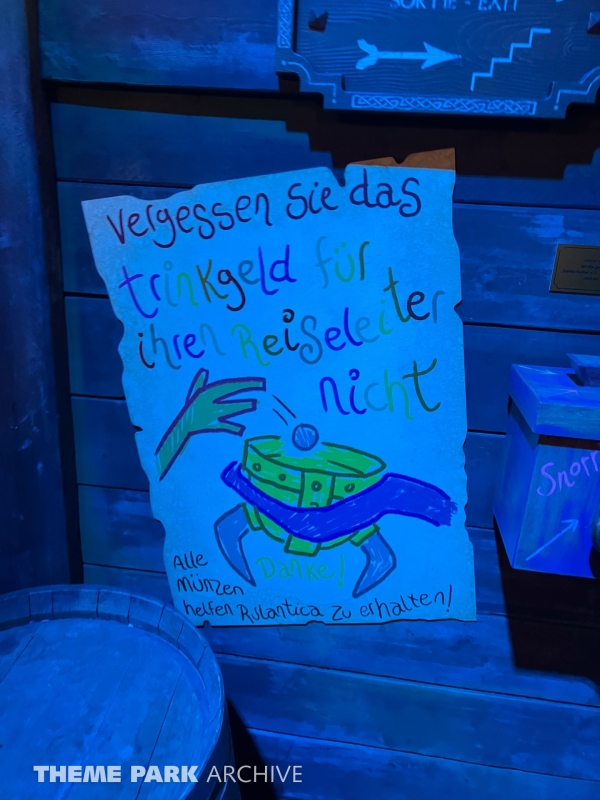 SORTIE - EXIT
Vergessen Sie das
trinkgeld für
ihren Reiseleiter
nicht
Danke!
Alle
Münzen
helfen Rulantica zu erhalten!
Snorr
THEME PARK ARCHIVE